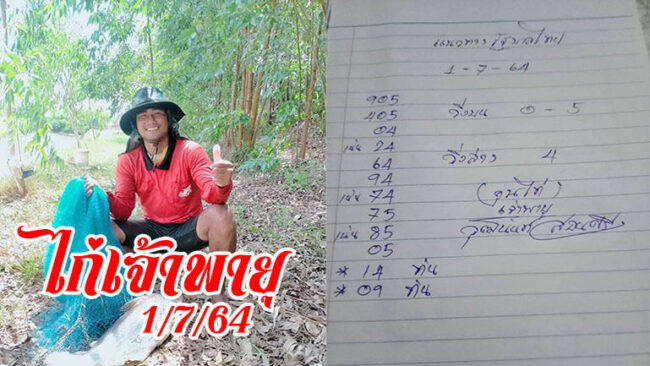 ไก่เจ้าพายุ
1/7/64
แนวทางรัฐบาลไทย
1-7-64
905
405
04
เน้น 24
64
94
เน้น 74
75
เน้น 85
05
* 14 ทุ่น
* 09 ทุ่น
วิ่งบน 0-5
วิ่งล่าง 4
เจ้าพายุ